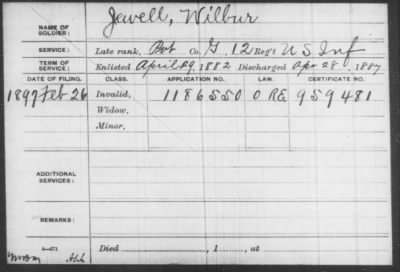 NAME OF SOLDIER: Jewell, Wilbur
SERVICE: Late rank, Pvt Co. G, 12 Reg't U S Inf
TERM OF SERVICE: Enlisted April 29, 1882 Discharged Apr 28, 1887
DATE OF FILING. CLASS. APPLICATION NO. LAW. CERTIFICATE NO.
1897 Feb 26 Invalid, 1186550 O RE, 959481
Widow,
Minor,
ADDITIONAL SERVICES:
REMARKS:
Died , 1 , at